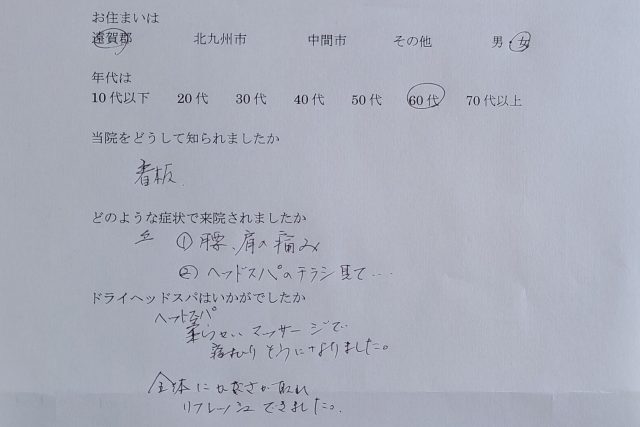 お住まいは
遠賀郡 北九州市 中間市 その他 男・女
年代は
10代以下 20代 30代 40代 50代 60代 70代以上
当院をどうして知られましたか
看板
どのような症状で来院されましたか
① 腰、肩の痛み
② ヘッドスパのチラシ見て…
ドライヘッドスパはいかがでしたか
ヘッドスパ
マッサージで
そうになりました。
全体に 取れ
リフレッシュできました。